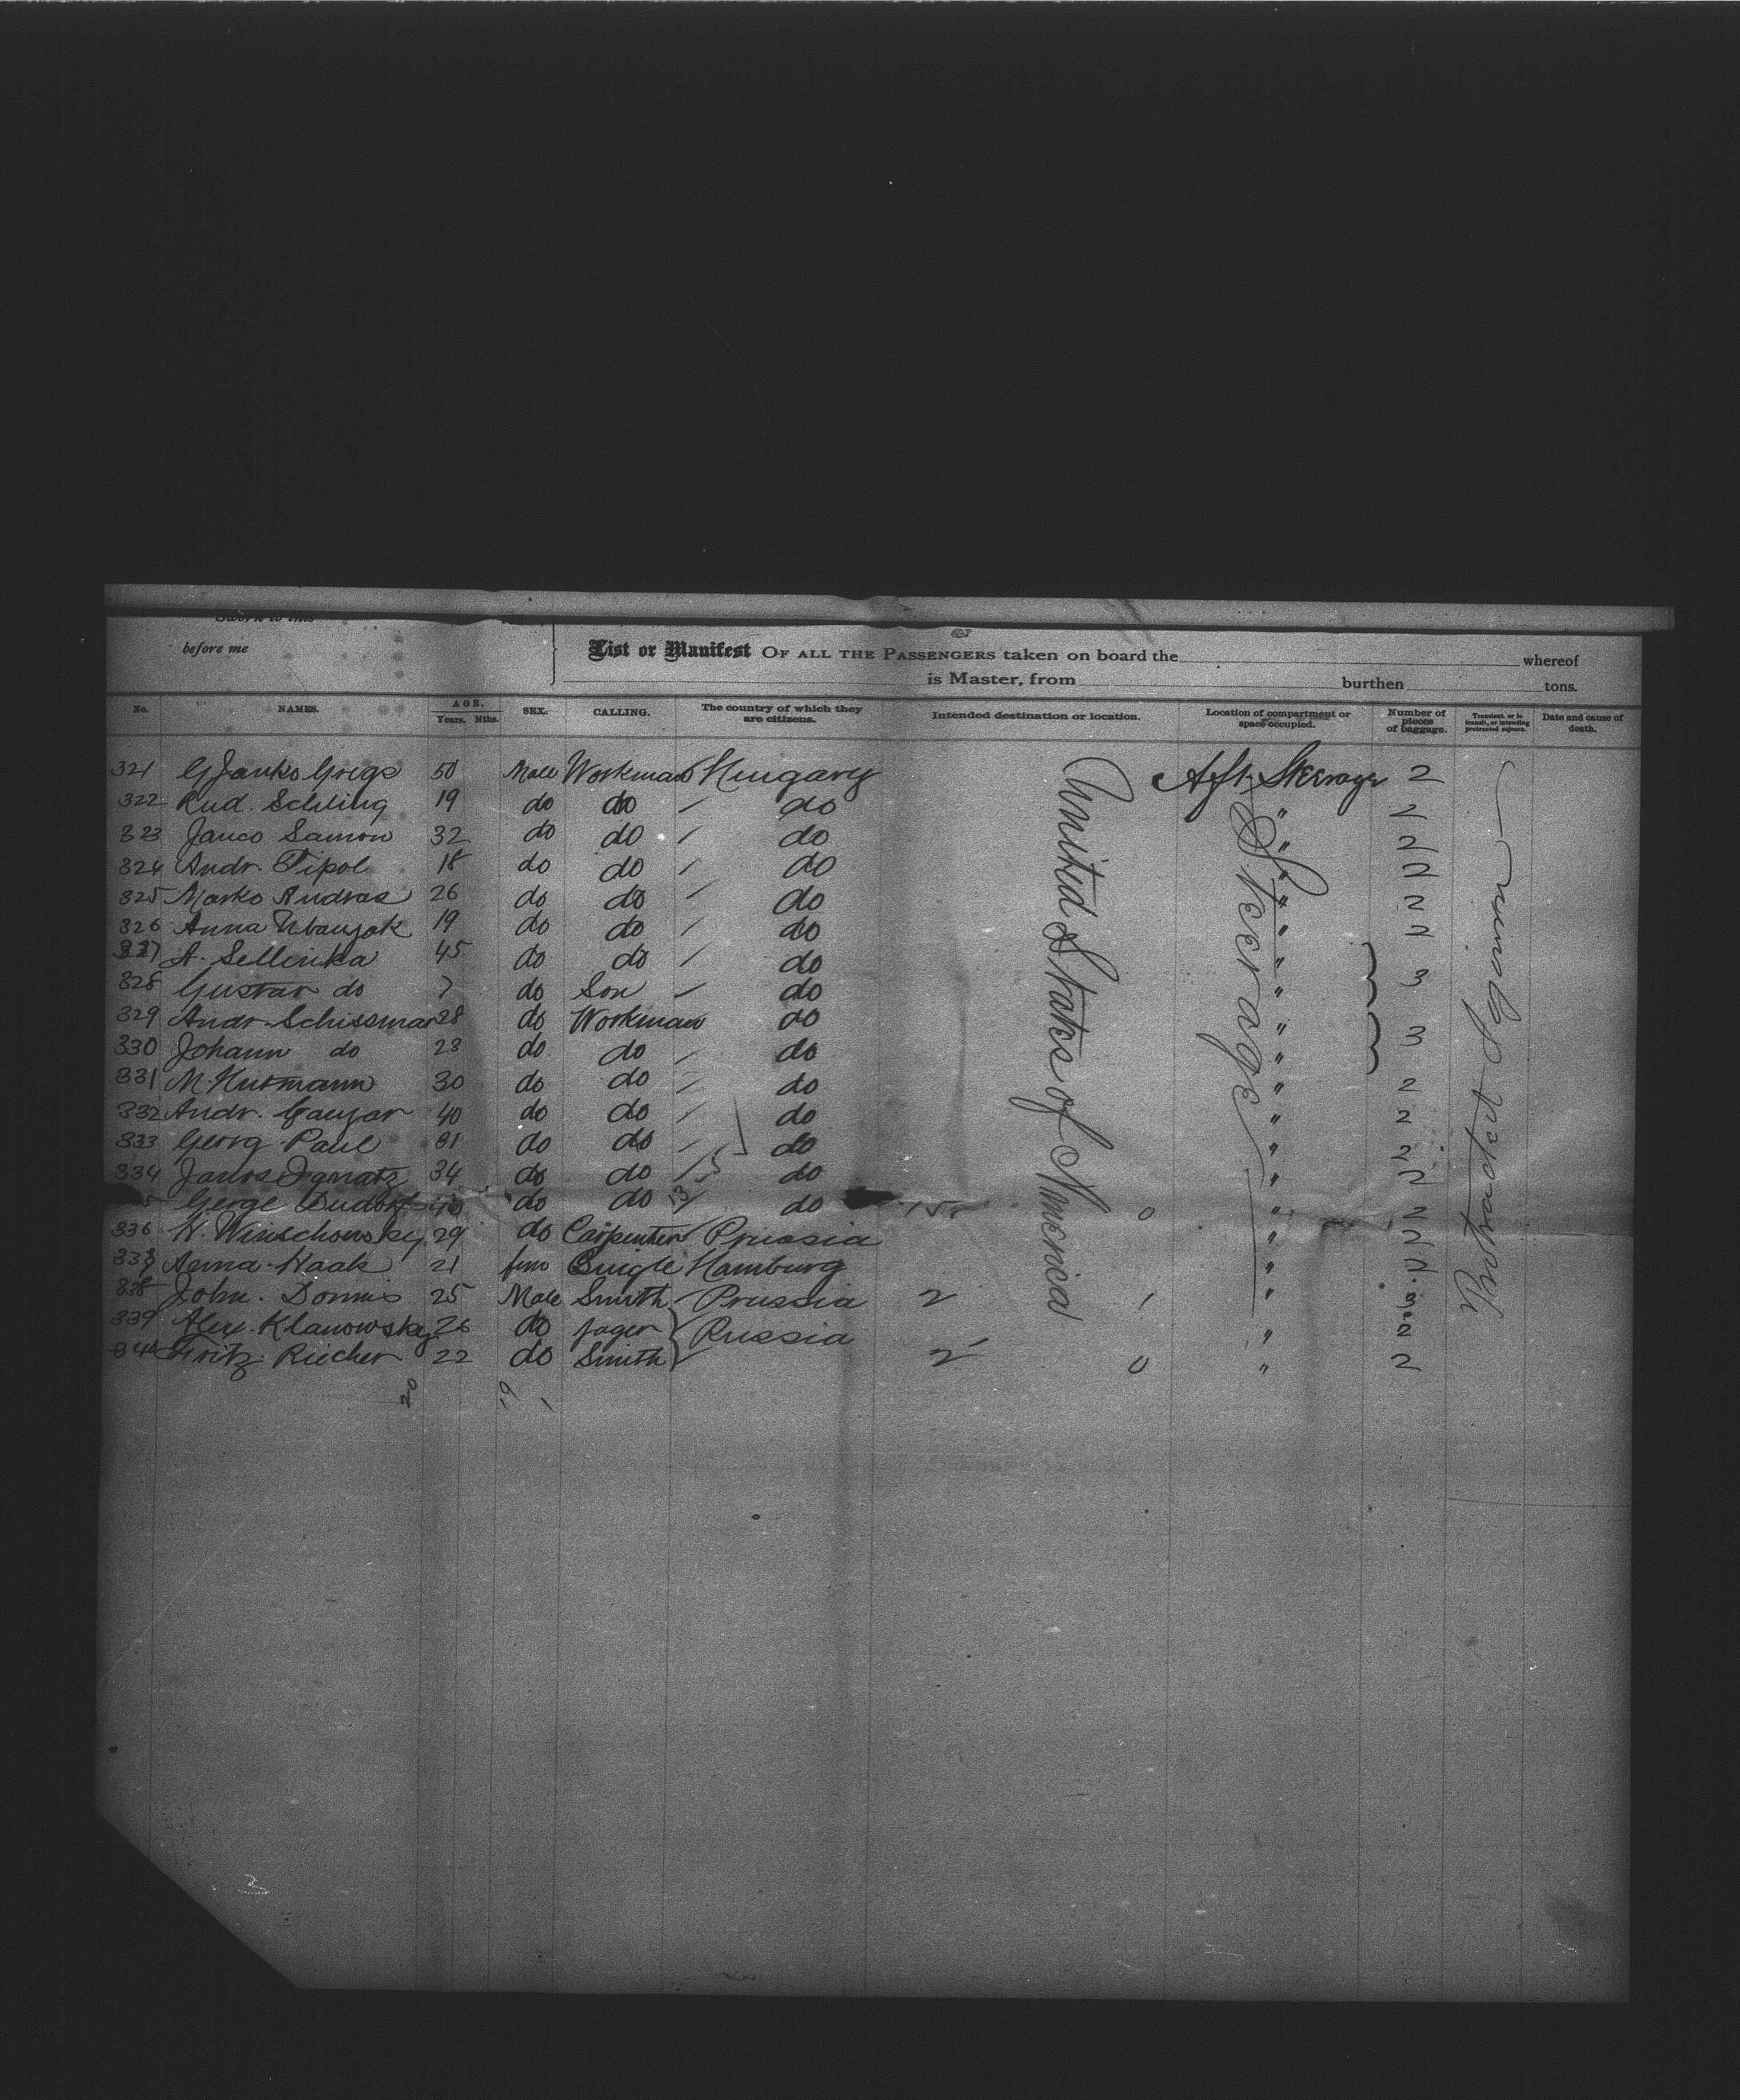 Sworn to this
before me
List or Manifest OF ALL THE PASSENGERS taken on board the whereof
is Master, from burthen tons.
No. NAMES. AGE. Years. Mths. SEX. CALLING. The country of which they are citizens. Intended destination or location. Location of compartment or space occupied. Number of pieces of baggage. Transient, or in transit, or intending protracted sojourn. Date and cause of death.
321 50 Male Workman Hungary United States of America Aft Steerage 2 Protracted Sojourn
322 Rud. Schling 19 do do / do " Steerage 2
323 Janco Samon 32 do do / do " 2
324 Andr. Tipol 18 do do / do " 2
325 Marko Andras 26 do do / do " 2
326 Anna 19 do do / do " 2
327 A. Sellinka 45 do do / do "
328 Gustav do 7 do Son / do " 3
329 Andr. Schissmar 28 do Workman do "
330 Johann do 23 do do / do " 3
331 M. Hutmann 30 do do / do " 2
332 Andr. Ganyar 40 do do / do " 2
333 Georg Paul 31 do do / do " 2
334 Janos Ignatz 34 do do / do " 2
5 George do do 13 / do 15 0 " 2
336 W. Wirischowsky 29 do Carpenter Prussia " 2
337 Anna Haak 21 fem Hamburg " 2
338 John. Dommis 25 Male Smith Prussia 2 1 " 3
339 Alex. Klanowsky 26 do Jager Russia " 2
340 Fritz Riecher 22 do Smith 2 0 " 2
20 19 1